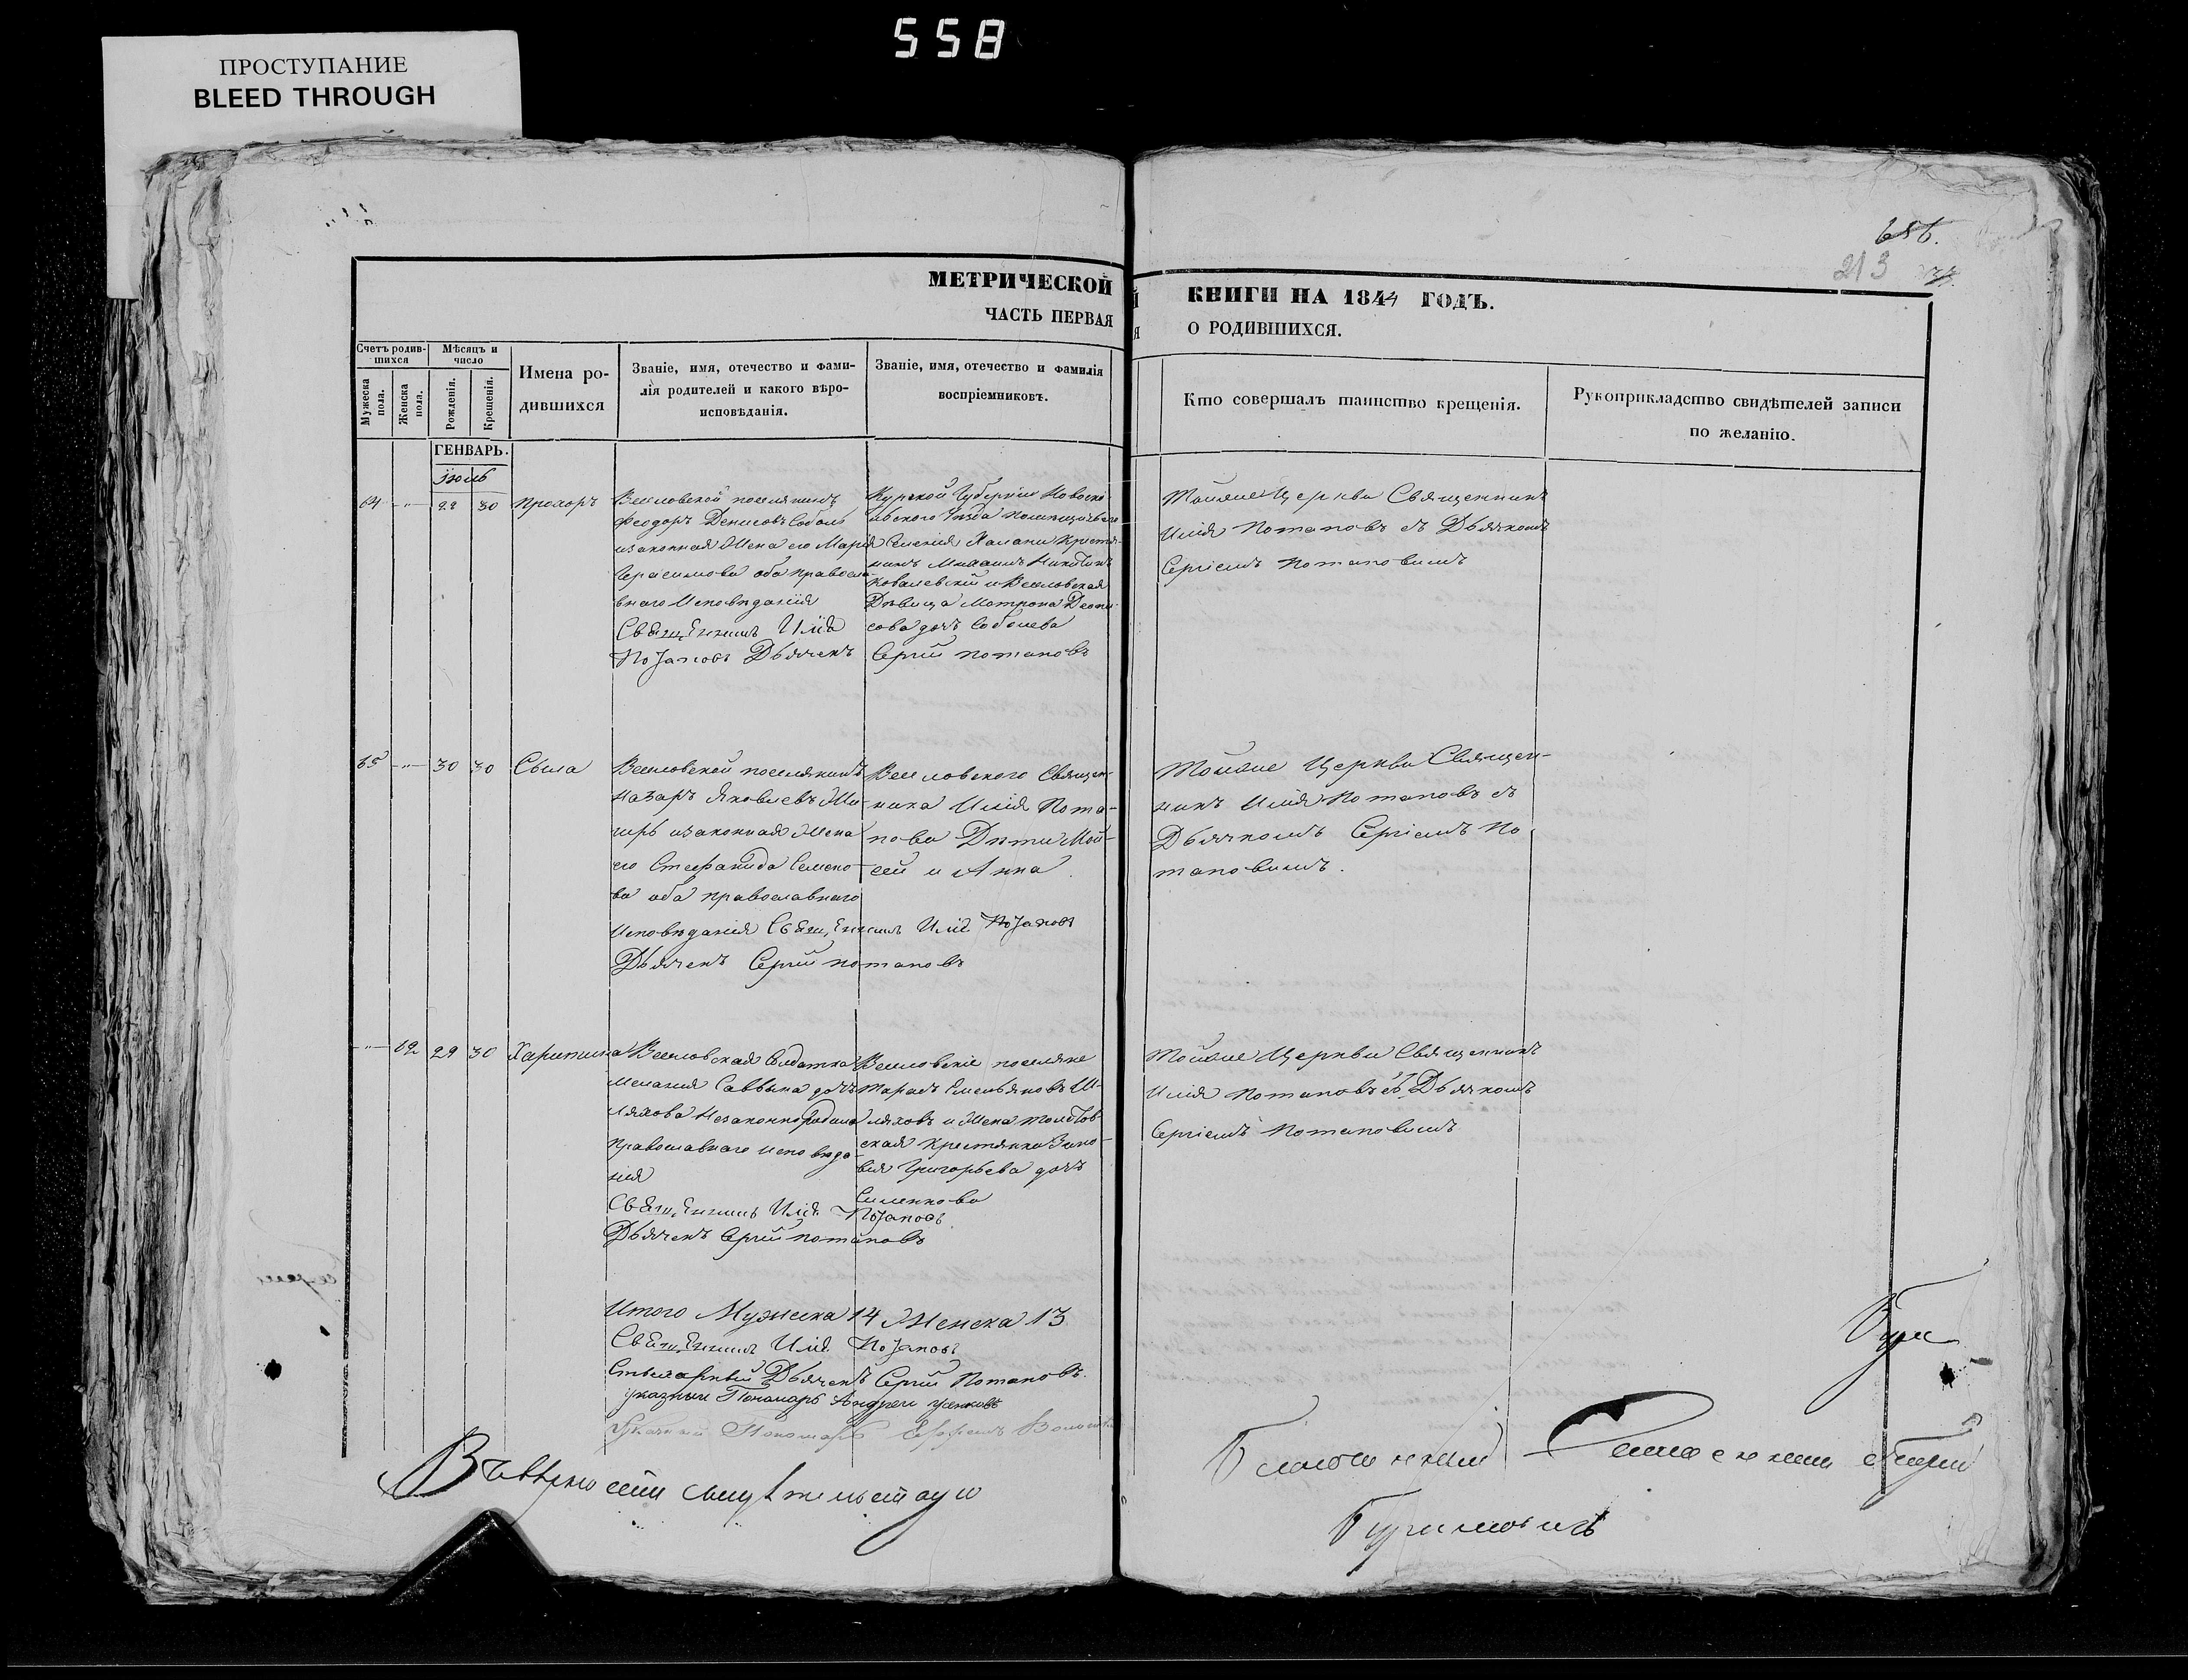 558
ПРОСТУПАНИЕ
BLEED THROUGH
656.
213
МЕТРИЧЕСКОЙ
ЧАСТЬ ПЕРВАЯ
КНИГИ НА 1844 ГОДЪ.
О РОДИВШИХСЯ.
Счетъ родив-
шихся
Мужеска пола.
Женска пола.
Мѣсяцъ и
число
Рожденія.
Крещенія.
Имена ро-
дившихся
Званіе, имя, отечество и фами-
лія родителей и какого вѣро-
исповѣданія.
Званіе, имя, отечество и фамилія
воспріемниковъ.
Кто совершалъ таинство крещенія.
Рукоприкладство свидѣтелей записи
по желанію.
ГЕНВАРЬ.
іюль
64 -"- 22 30 Прохоръ
Веселовской поселянинъ
Феодоръ Денисовъ Соболь
изаконная Жена его Марія
Герасимова оба правосла-
внаго Исповѣданія
Священникъ Илія
Потаповъ Дьячекъ
Курской Губерніи Новоско-
льского Уѣзда
Крестья-
нинъ Михаилъ Никитинъ
Ковалевскій и Веселовская
Дѣвица Матрона Дени-
сова дочь Соболева
Сергій Потаповъ
Тойже Церкви Священникъ
Илія Потаповъ съ Дьячкомъ
Сергіемъ Потаповымъ
65 -"- 30 30 Сыла
Веселовской поселянинъ
Назаръ Яковлевъ
изаконная Жена
его Стефанида Семено-
ва оба православнаго
Исповѣданія Священникъ Илія Потаповъ
Дьячекъ Сергій Потаповъ
Веселовского Священ-
ника Илія Пота-
пова Дѣти Мой-
сей и Анна
Тойже Церкви Священ-
никъ Илія Потаповъ съ
Дьячкомъ Сергіемъ По-
таповымъ.
-"- 29 30 Харитина
Веселовская Солдатка
Меланія Саввина дочь
Шляхова Незаконнород
Православнаго исповѣда-
нія
Священникъ Илія Потаповъ
Дьячекъ Сергій Потаповъ
Веселовскіе поселяне
Тарасъ Емельяновъ Ш-
ляховъ и Жена
ская крестянка Зино-
вія Григорьева дочь
Симикова
Тойже Церкви Священникъ
Илія Потаповъ съ Дьячкомъ
Сергіемъ Потаповымъ
Итого Мужеска 14 Женска 13
Священникъ Илія Потаповъ
Дьячекъ Сергій Потаповъ.
Указный Пономарь Андрей
Указный Пономарь Ефремъ